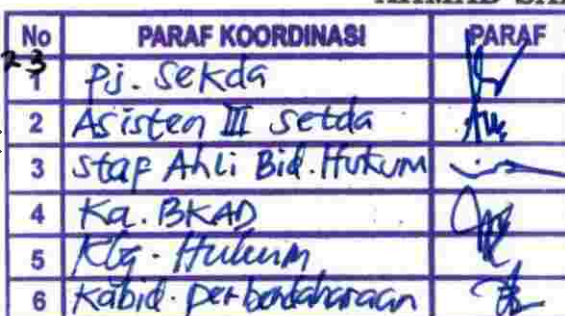 No PARAF KOORDINASI PARAF
23
1 Pj. Sekda
2 Asisten III setda
3 Staf Ahli Bid. Hukum
4 Ka. BKAD
5 Kbg. Hukum
6 Kabid. perbendaharaan